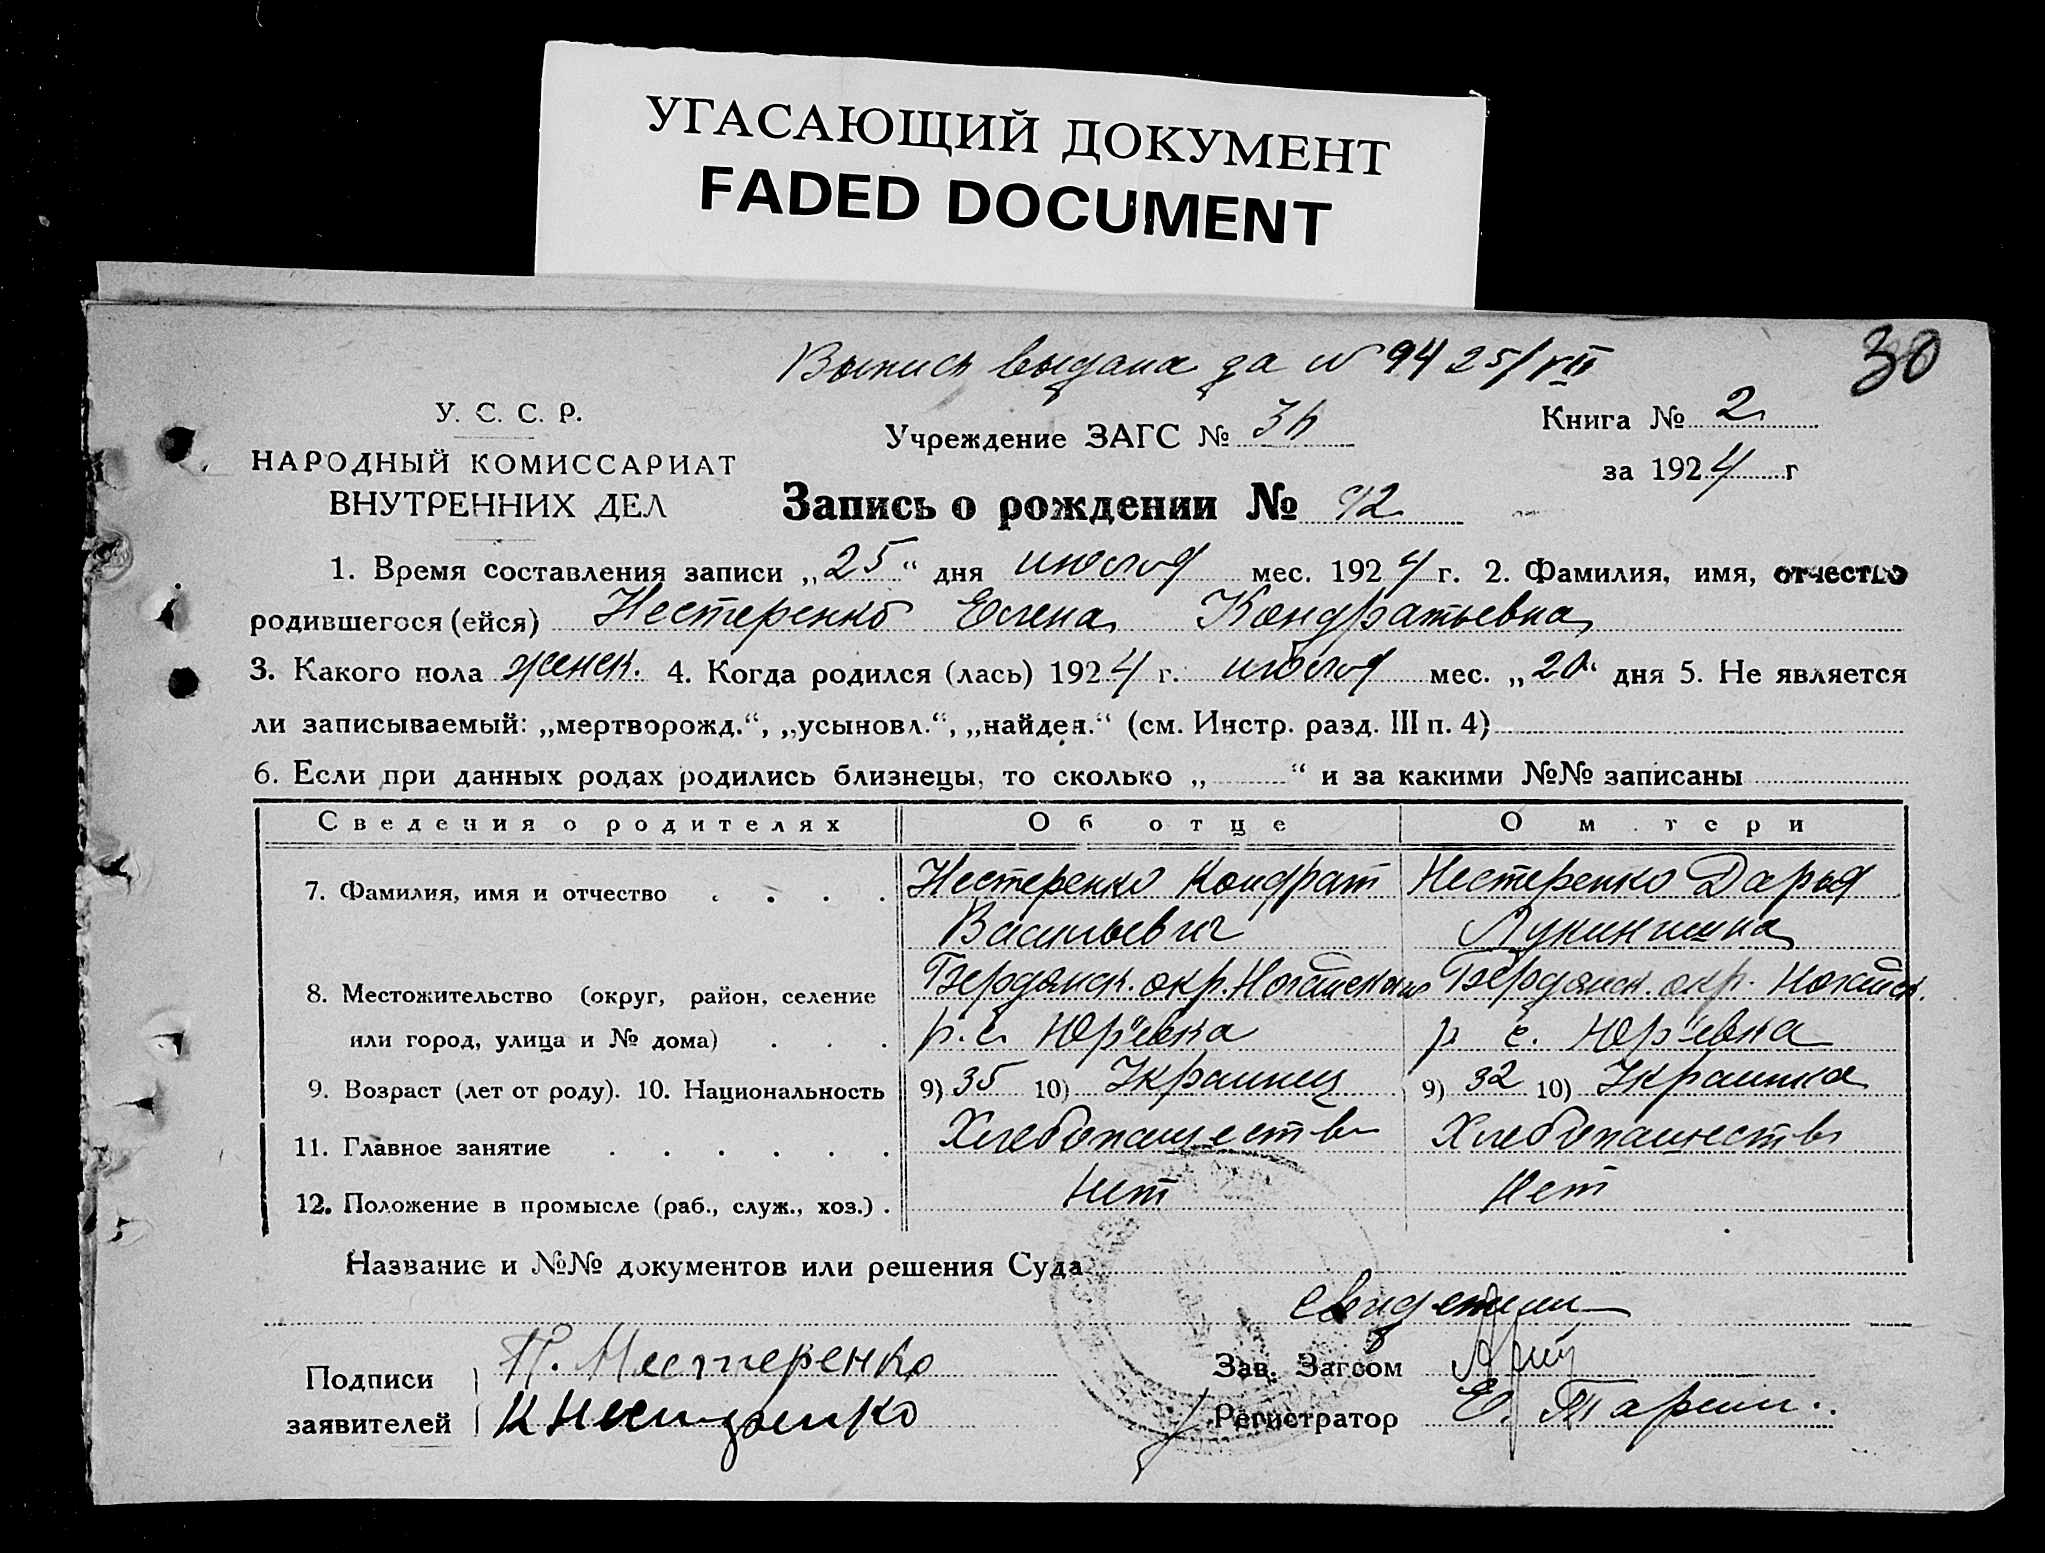 УГАСАЮЩИЙ ДОКУМЕНТ
FADED DOCUMENT
30
Выпись выдана за № 94 25/VII
У. С. С. Р.
НАРОДНЫЙ КОМИССАРИАТ
ВНУТРЕННИХ ДЕЛ
Учреждение ЗАГС №
Книга № 2
за 1924 г
Запись о рождении № 92
1. Время составления записи „25“ дня июля мес. 1924 г. 2. Фамилия, имя, отчество
родившегося (ейся) Нестеренко Елена Кондратьевна
3. Какого пола женск. 4. Когда родился (лась) 1924 г. июля мес. „20“ дня 5. Не является
ли записываемый: „мертворожд.“, „усыновл.“, „найден.“ (см. Инстр. разд. III п. 4)
6. Если при данных родах родились близнецы, то сколько „ “ и за какими №№ записаны
Сведения о родителях Об отце О матери
7. Фамилия, имя и отчество . . . . Нестеренко Кондрат Нестеренко Дарья
Васильевич Лукинишна
8. Местожительство (округ, район, селение Бердянск. окр. Ногайский Бердянск. окр. Ногайск.
или город, улица и № дома) . . . р. с. Юр'евка р с. Юр'евка
9. Возраст (лет от роду). 10. Национальность 9) 35 10) Украинец 9) 32 10) Украинка
11. Главное занятие . . . . . . Хлебопашество Хлебопашество
12. Положение в промысле (раб., служ., хоз.) . Нет Нет
Название и №№ документов или решения Суда
свидетели
Подписи П. Нестеренко Зав. Загсом
заявителей К Нестеренко Регистратор Е.